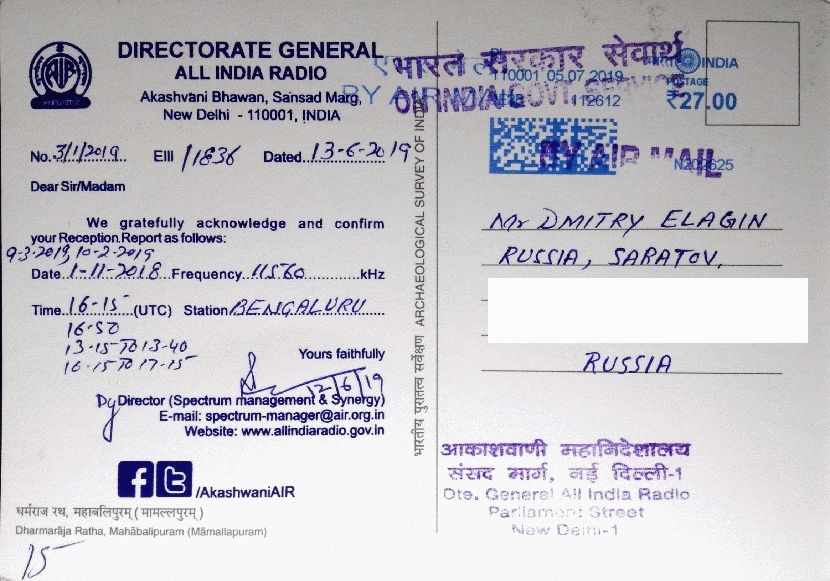 DIRECTORATE GENERAL
ALL INDIA RADIO
Akashvani Bhawan, Sansad Marg,
New Delhi - 110001, INDIA
No. 3/1/2019 EIII /1836 Dated 13-6-2019
Dear Sir/Madam
We gratefully acknowledge and confirm
your Reception Report as follows:
9-3-2019, 10-2-2019
Date 1-11-2018 Frequency 11560 kHz
Time 16-15 (UTC) Station BENGALURU
16-50
13-15 TO 13-40
16-15 TO 17-15
Yours faithfully
12/6/19
Dy Director (Spectrum management & Synergy)
E-mail: spectrum-manager@air.org.in
Website: www.allindiaradio.gov.in
/AkashwaniAIR
धर्मराज रथ, महाबलिपुरम् ( मामल्लपुरम् )
Dharmarāja Ratha, Mahābalipuram (Māmallapuram)
15
भारतीय पुरातत्व सर्वेक्षण ARCHAEOLOGICAL SURVEY OF INDIA
भारत सरकार सेवार्थ
ON INDIA GOVT. SERVICE
BY AIR
110001 05.07.2019
112612
INDIA
POSTAGE
₹27.00
BY AIR MAIL
N202625
Mr DMITRY ELAGIN
RUSSIA, SARATOV,
RUSSIA
आकाशवाणी महानिदेशालय
संसद मार्ग, नई दिल्ली-1
Dte. General All India Radio
Parliament Street
New Delhi-1